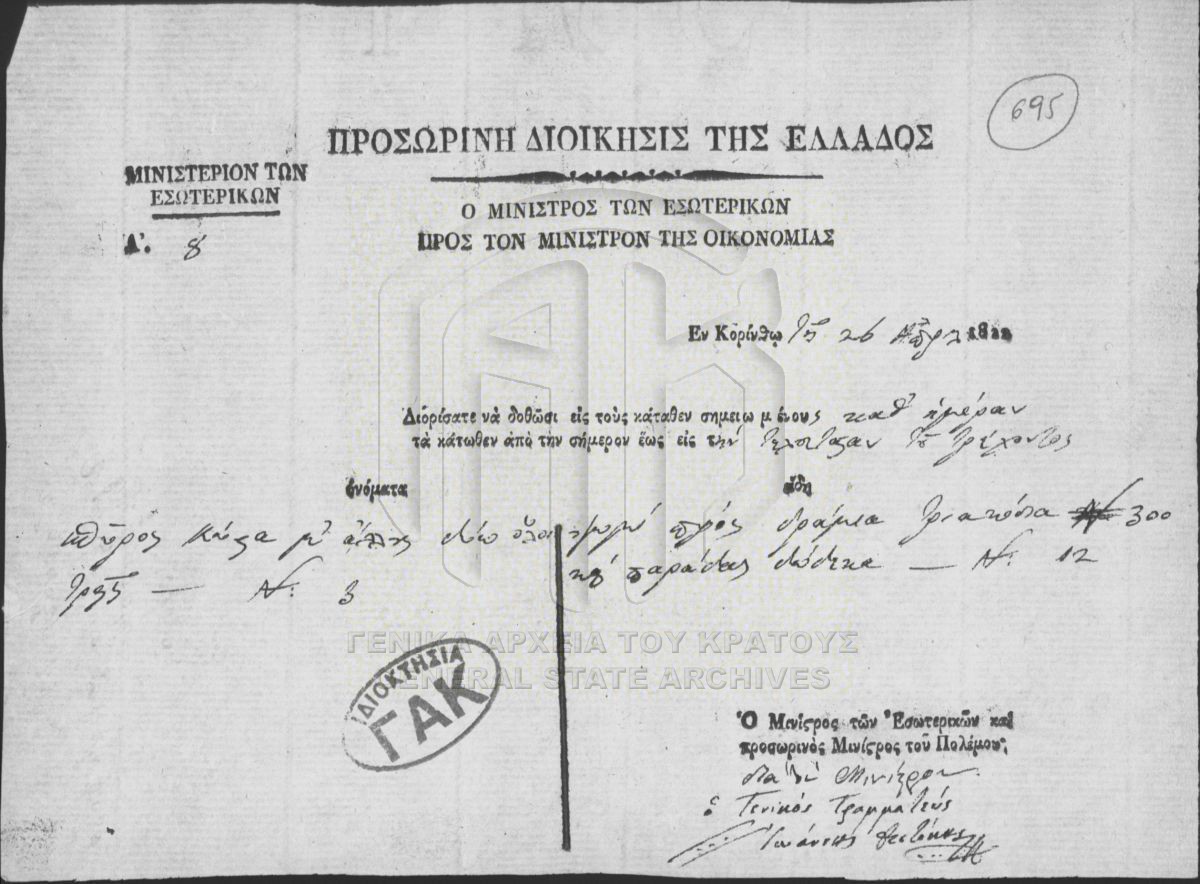 695
ΠΡΟΣΩΡΙΝΗ ΔΙΟΙΚΗΣΙΣ ΤΗΣ ΕΛΛΑΔΟΣ
ΜΙΝΙΣΤΕΡΙΟΝ ΤΩΝ
ΕΣΩΤΕΡΙΚΩΝ
Ο ΜΙΝΙΣΤΡΟΣ ΤΩΝ ΕΣΩΤΕΡΙΚΩΝ
ΠΡΟΣ ΤΟΝ ΜΙΝΙΣΤΡΟΝ ΤΗΣ ΟΙΚΟΝΟΜΙΑΣ
Α'. 8
Εν Κορίνθῳ τῇ 26 Ἀπρ 1822
Διορίσατε νὰ δοθῶσι εἰς τοὺς κάταθεν σημειωμένους καθ' ἡμέραν
τὰ κάτωθεν ἀπὸ τὴν σήμερον ἕως εἰς τὴν τοῦ τρέχοντος
ὀνόματα
εἴδη
δύω ψωμὶ πρὸς δράμια τριακόσια 300
Ν: 3
καὶ παράδες δώδεκα — Ν: 12
ΓΕΝΙΚΑ ΑΡΧΕΙΑ ΤΟΥ ΚΡΑΤΟΥΣ
GENERAL STATE ARCHIVES
ΙΔΙΟΚΤΗΣΙΑ
ΓΑΚ
Ὁ Μινίςρος τῶν Ἐσωτερικῶν καὶ
προσωρινὸς Μινίςρος τοῦ Πολέμου;
διὰ τὸν Μινίςρον
ὁ Γενικὸς Γραμματεὺς
Ἰωάννης